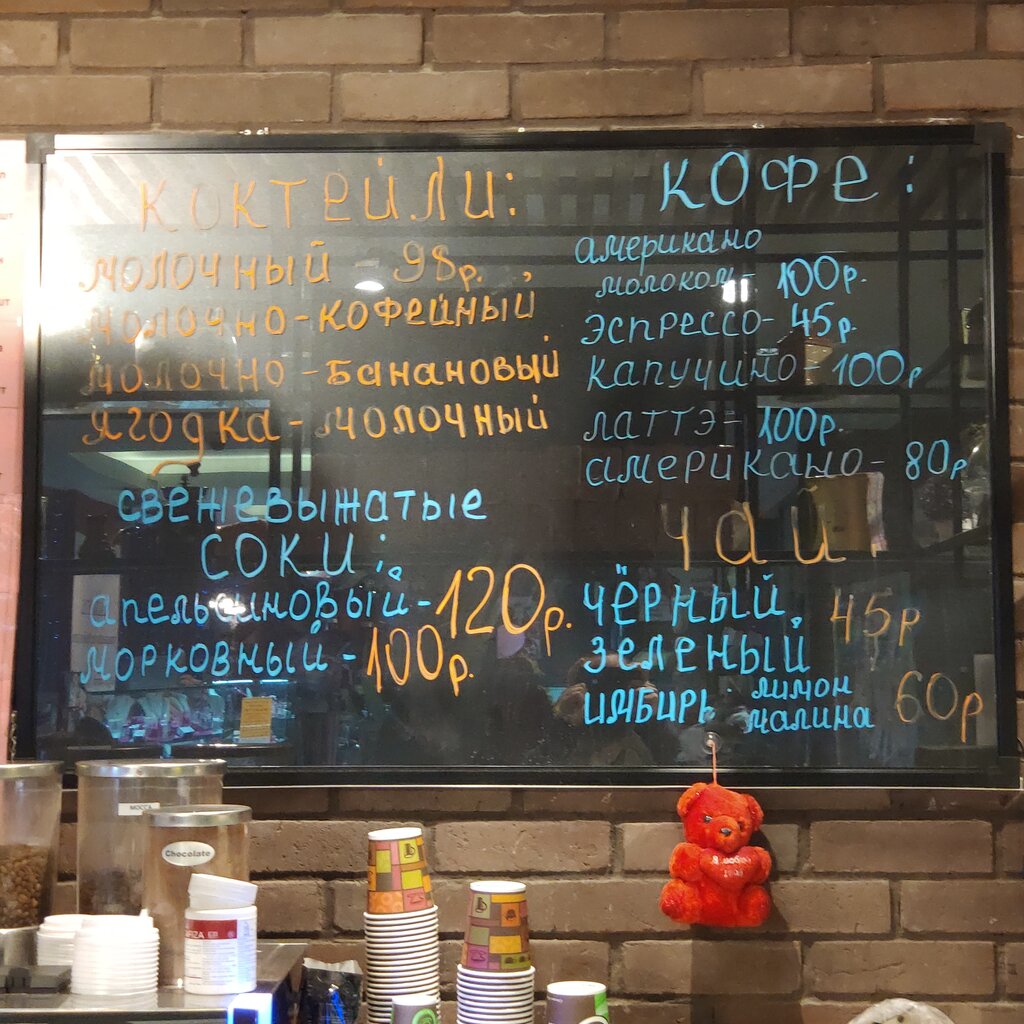 коктейли:
молочный 98р.,
молочно-кофейный
молочно-банановый
ягодка-молочный
свежевыжатые
соки:
апельсиновый-120р.
морковный-100р.
кофе:
американо
молоком-100р.
эспрессо-45р.
капучино-100р
латтэ-100р.
американо-80р
чай
чёрный, 45р
зеленый
имбирь лимон 60р
малина
МОССА
Chocolate